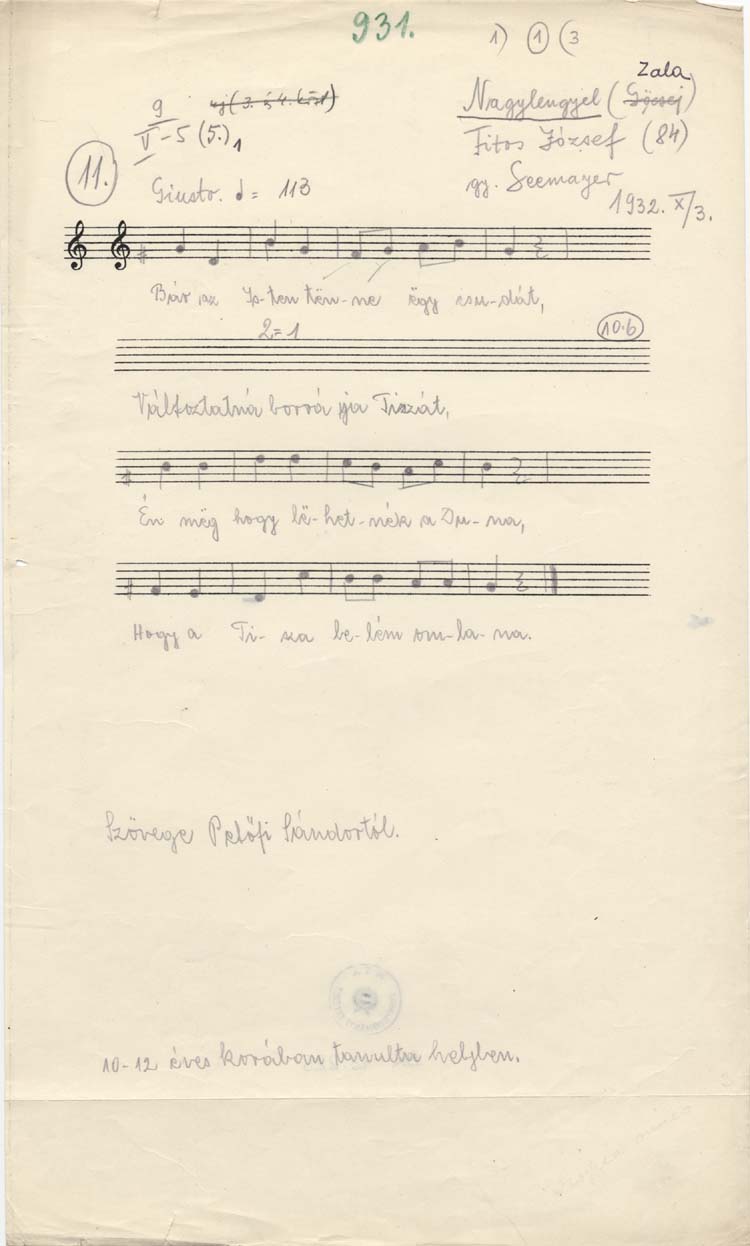 931.
1) 1 (3
Zala
9 új (3. és 4. közt) Nagylengyel (Göcsej)
V-5 (5.)1 Fitos József (84)
11. gy. Seemayer
Giusto. = 113 1932. X/3.
Bár az Is-ten tën-ne ëgy csu-dát,
2=1 10.6
Változtatná borrá ja Tiszát,
Én mëg hogy lë-het-nék a Du-na,
Hogy a Ti-sza be-lém om-la-na.
Szövege Petőfi Sándortól.
10-12 éves korában tanulta helyben.